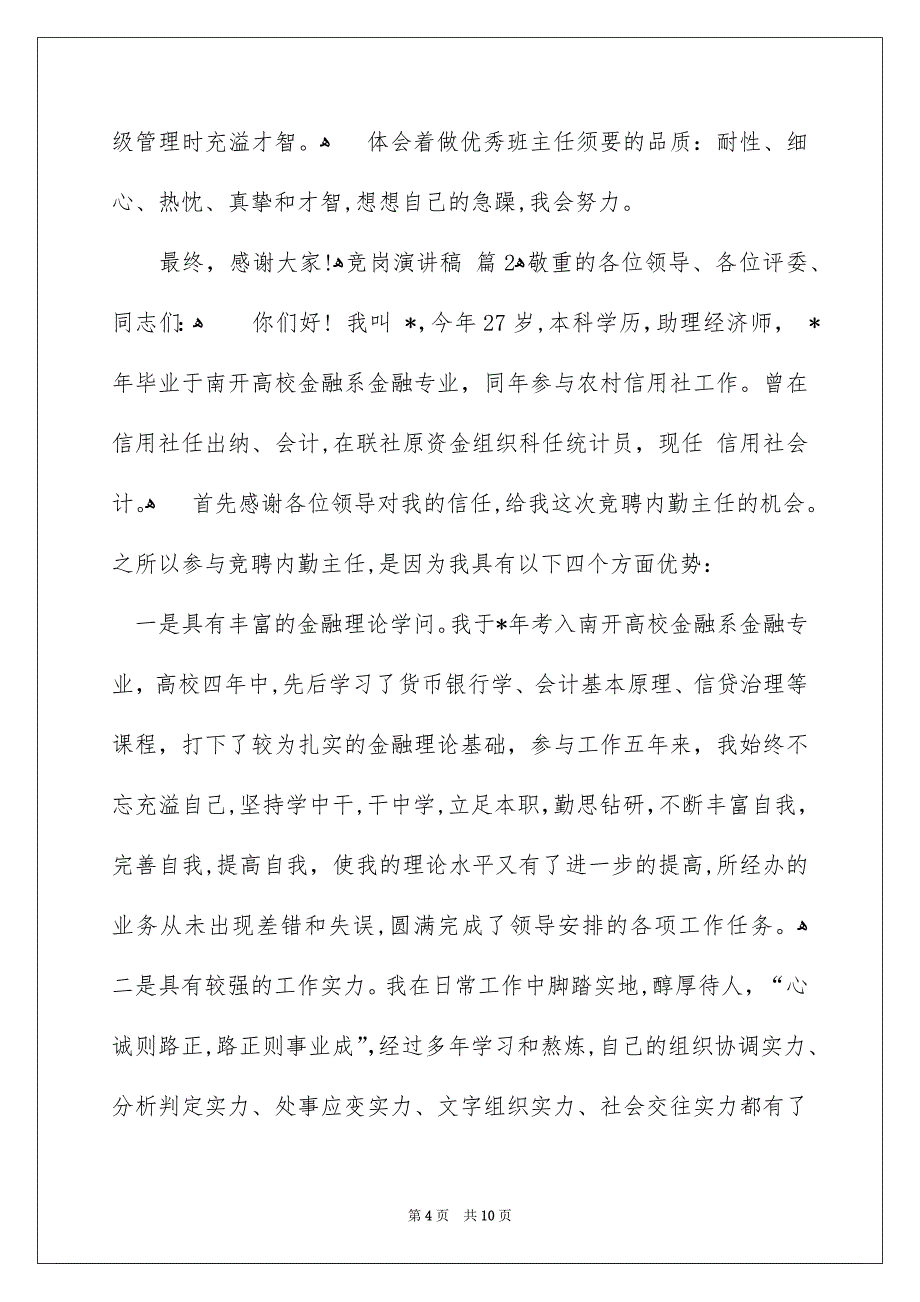 级管理时充溢才智。ﻫ　　体会着做优秀班主任须要的品质：耐性、细
心、热忱、真挚和才智,想想自己的急躁,我会努力。
最终，感谢大家!ﻫ竞岗演讲稿 篇2ﻫ敬重的各位领导、各位评委、
同志们：ﻫ　　你们好! 我叫 *,今年27岁,本科学历,助理经济师， *
年毕业于南开高校金融系金融专业，同年参与农村信用社工作。曾在
信用社任出纳、会计,在联社原资金组织科任统计员，现任 信用社会
计。ﻫ　　首先感谢各位领导对我的信任,给我这次竞聘内勤主任的机会。
之所以参与竞聘内勤主任,是因为我具有以下四个方面优势：
一是具有丰富的金融理论学问。我于*年考入南开高校金融系金融专
业，高校四年中,先后学习了货币银行学、会计基本原理、信贷治理等
课程，打下了较为扎实的金融理论基础，参与工作五年来，我始终不
忘充溢自己,坚持学中干,干中学,立足本职,勤思钻研,不断丰富自我，
完善自我,提高自我，使我的理论水平又有了进一步的提高,所经办的
业务从未出现差错和失误,圆满完成了领导安排的各项工作任务。ﻫ
二是具有较强的工作实力。我在日常工作中脚踏实地,醇厚待人，“心
诚则路正,路正则事业成”,经过多年学习和熬炼,自己的组织协调实力、
分析判定实力、处事应变实力、文字组织实力、社会交往实力都有了
第4页 共10页